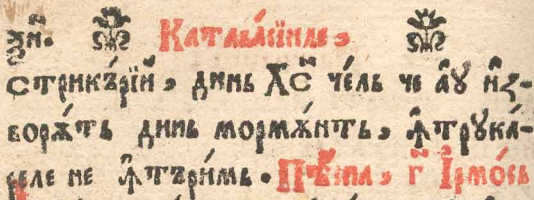 ꙋн҃. Катава́сїиле,
стрикъ́рїй, динь Хс҃ че́ль че аꙋ и҆з-
ворѫ́ть динь мормѫ́нть, ꙟтрꙋка́-
реле не ꙟтъри́мь. Пѣ́сна, г҃ І҆рмо́сь